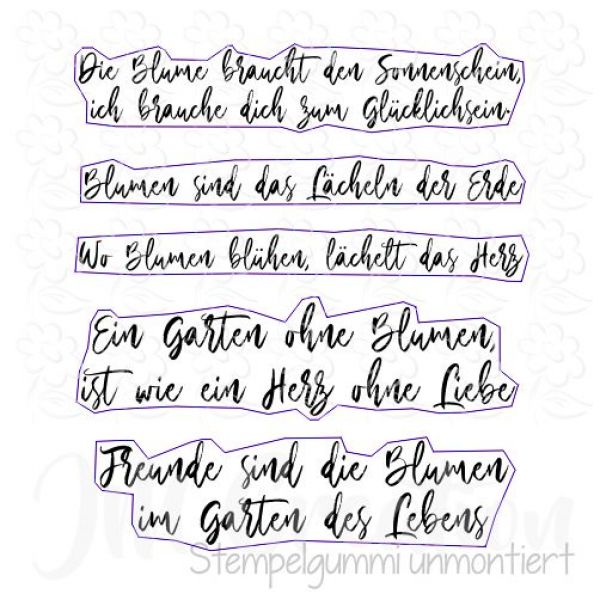 Die Blume braucht den Sonnenschein,
ich brauche dich zum Glücklichsein.
Blumen sind das Lächeln der Erde
Wo Blumen blühen, lächelt das Herz
Ein Garten ohne Blumen,
ist wie ein Herz ohne Liebe
Freunde sind die Blumen
im Garten des Lebens
Stempelgummi unmontiert